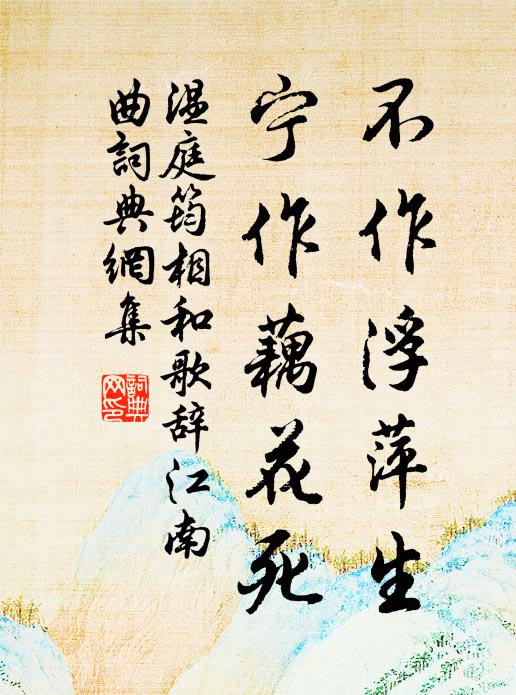 不作浮萍生
宁作藕花死
温庭筠相和歌辞江南
曲詞典網集
詞典
网印